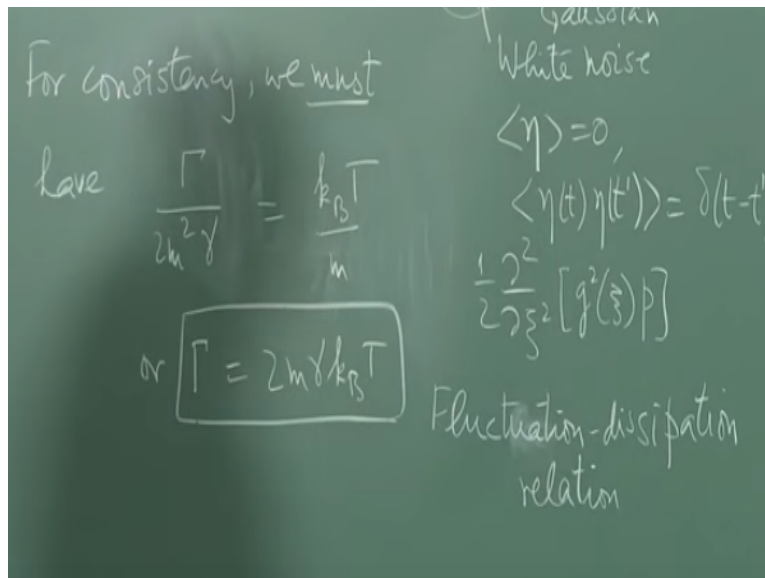 For consistency, we must
have Γ/2m²γ = k_BT/m
or Γ = 2mγk_BT
Gaussian
White noise
⟨η⟩ = 0,
⟨η(t) η(t')⟩ = δ(t-t'
1/2 ∂²/∂ξ² [g²(ξ)p]
Fluctuation-dissipation
relation